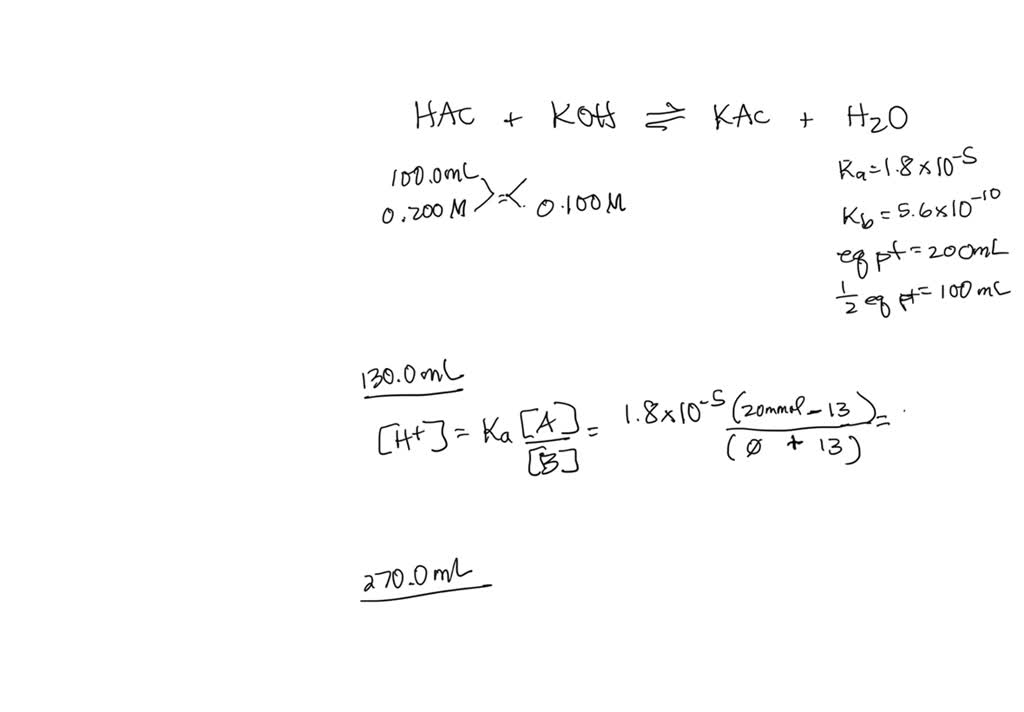 HAc + KOH ⇌ KAc + H₂O
Ka = 1.8×10⁻⁵
100.0mL
0.200 M >=< 0.100 M
Kb = 5.6×10⁻¹⁰
eq pt = 200mL
1/2 eq pt = 100 mL
130.0mL
[H⁺] = Ka [A]/[B] = 1.8×10⁻⁵ (20mmol - 13)/(∅ + 13) =
270.0mL